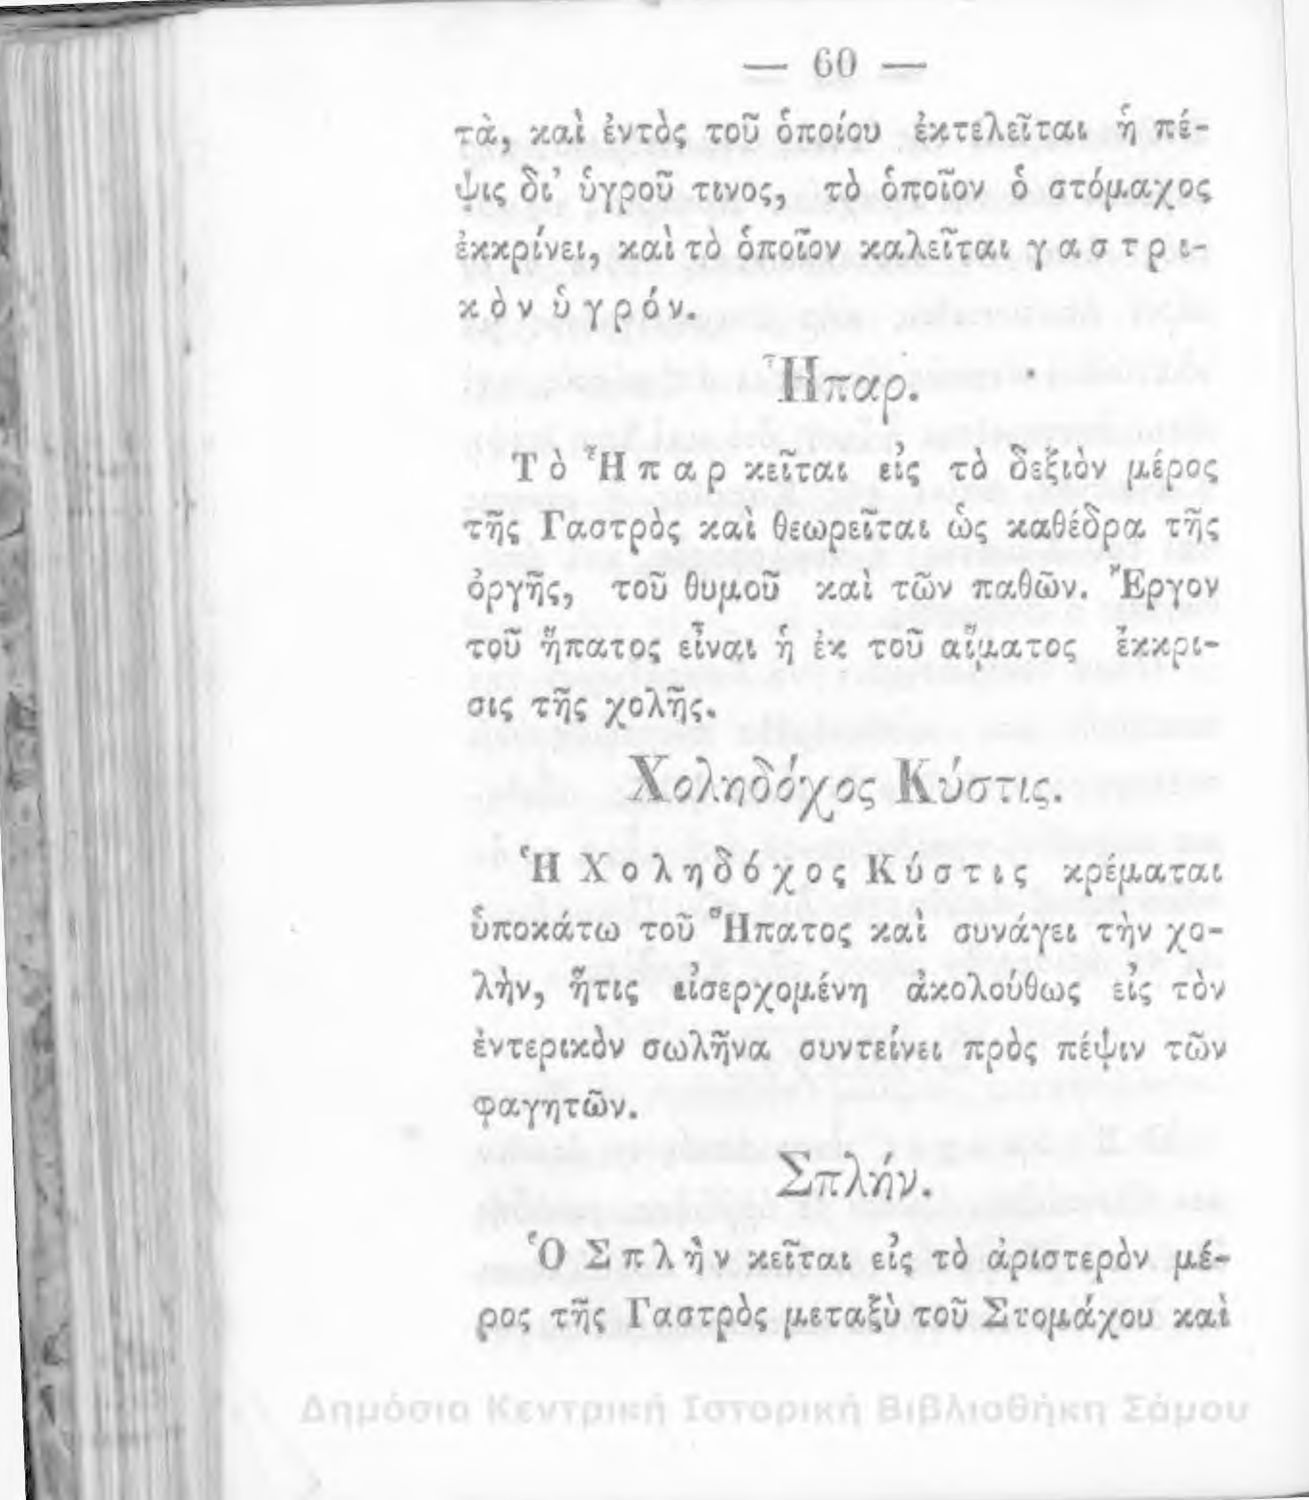 — 60 —
τὰ, καὶ ἐντὸς τοῦ ὁποίου ἐκτελεῖται ἡ πέ-
ψις δι’ ὑγροῦ τινος, τὸ ὁποῖον ὁ στόμαχος
ἐκκρίνει, καὶ τὸ ὁποῖον καλεῖται γαστρι-
κὸν ὑγρόν.
Ἧπαρ.
Τὸ Ἧπαρ κεῖται εἰς τὸ δεξιὸν μέρος
τῆς Γαστρὸς καὶ θεωρεῖται ὡς καθέδρα τῆς
ὀργῆς, τοῦ θυμοῦ καὶ τῶν παθῶν. Ἔργον
τοῦ ἥπατος εἶναι ἡ ἐκ τοῦ αἵματος ἔκκρι-
σις τῆς χολῆς.
Χοληδόχος Κύστις.
Ἡ Χοληδόχος Κύστις κρέμαται
ὑποκάτω τοῦ Ἥπατος καὶ συνάγει τὴν χο-
λὴν, ἥτις εἰσερχομένη ἀκολούθως εἰς τὸν
ἐντερικὸν σωλῆνα συντείνει πρὸς πέψιν τῶν
φαγητῶν.
Σπλήν.
Ὁ Σπλὴν κεῖται εἰς τὸ ἀριστερὸν μέ-
ρος τῆς Γαστρὸς μεταξὺ τοῦ Στομάχου καὶ
Δημόσια Κεντρική Ιστορική Βιβλιοθήκη Σάμου